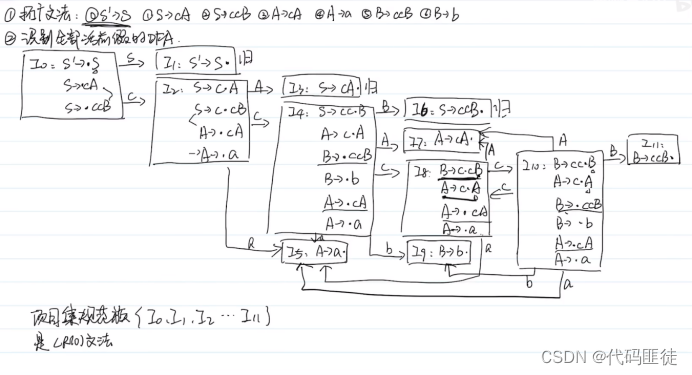 ① 拓广文法: ⓪S'→S ①S→cA ②S→ccB ③A→cA ④A→a ⑤B→ccB ⑥B→b
② 识别全部活前缀的DFA.
I0: S'→·S
S→·cA
S→·ccB
S
I1: S'→S· 归
c
I2: S→c·A
S→c·cB
A→·cA
→A→·a
A
I3: S→cA· 归
c
I4: S→cc·B
A→c·A
B→·ccB
B→·b
A→·cA
A→·a
B
I6: S→ccB· 归
A
I7: A→cA·
c
I8: B→c·cB
A→c·A
A→·cA
A→·a
A
c
c
I10: B→cc·B
A→c·A
B→·ccB
B→·b
A→·cA
A→·a
A
B
I11:
B→ccB·
a
I5: A→a·
b
I9: B→b·
a
b
a
项目集规范族 {I0, I1, I2 ··· I11}
是LR(0)文法
CSDN @代码匪徒